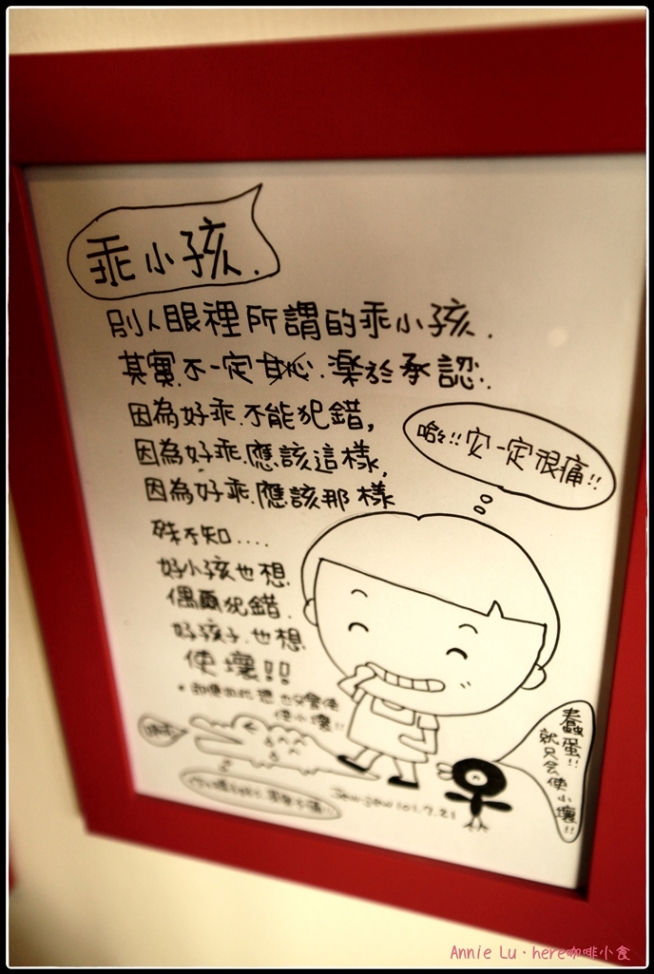 乖小孩.
別人眼裡所謂的乖小孩.
其實.不一定甘心.樂於承認.
因為好乖.不能犯錯,
因為好乖.應該這樣,
因為好乖.應該那樣
殊不知....
好小孩也想.
偶爾犯錯.
好孩子.也想.
使壞!!
使小壞!!
哈!!一定很痛!!
蠢蛋!!
就只会使小壞!!
101.7.21
Annie Lu · here咖啡小食